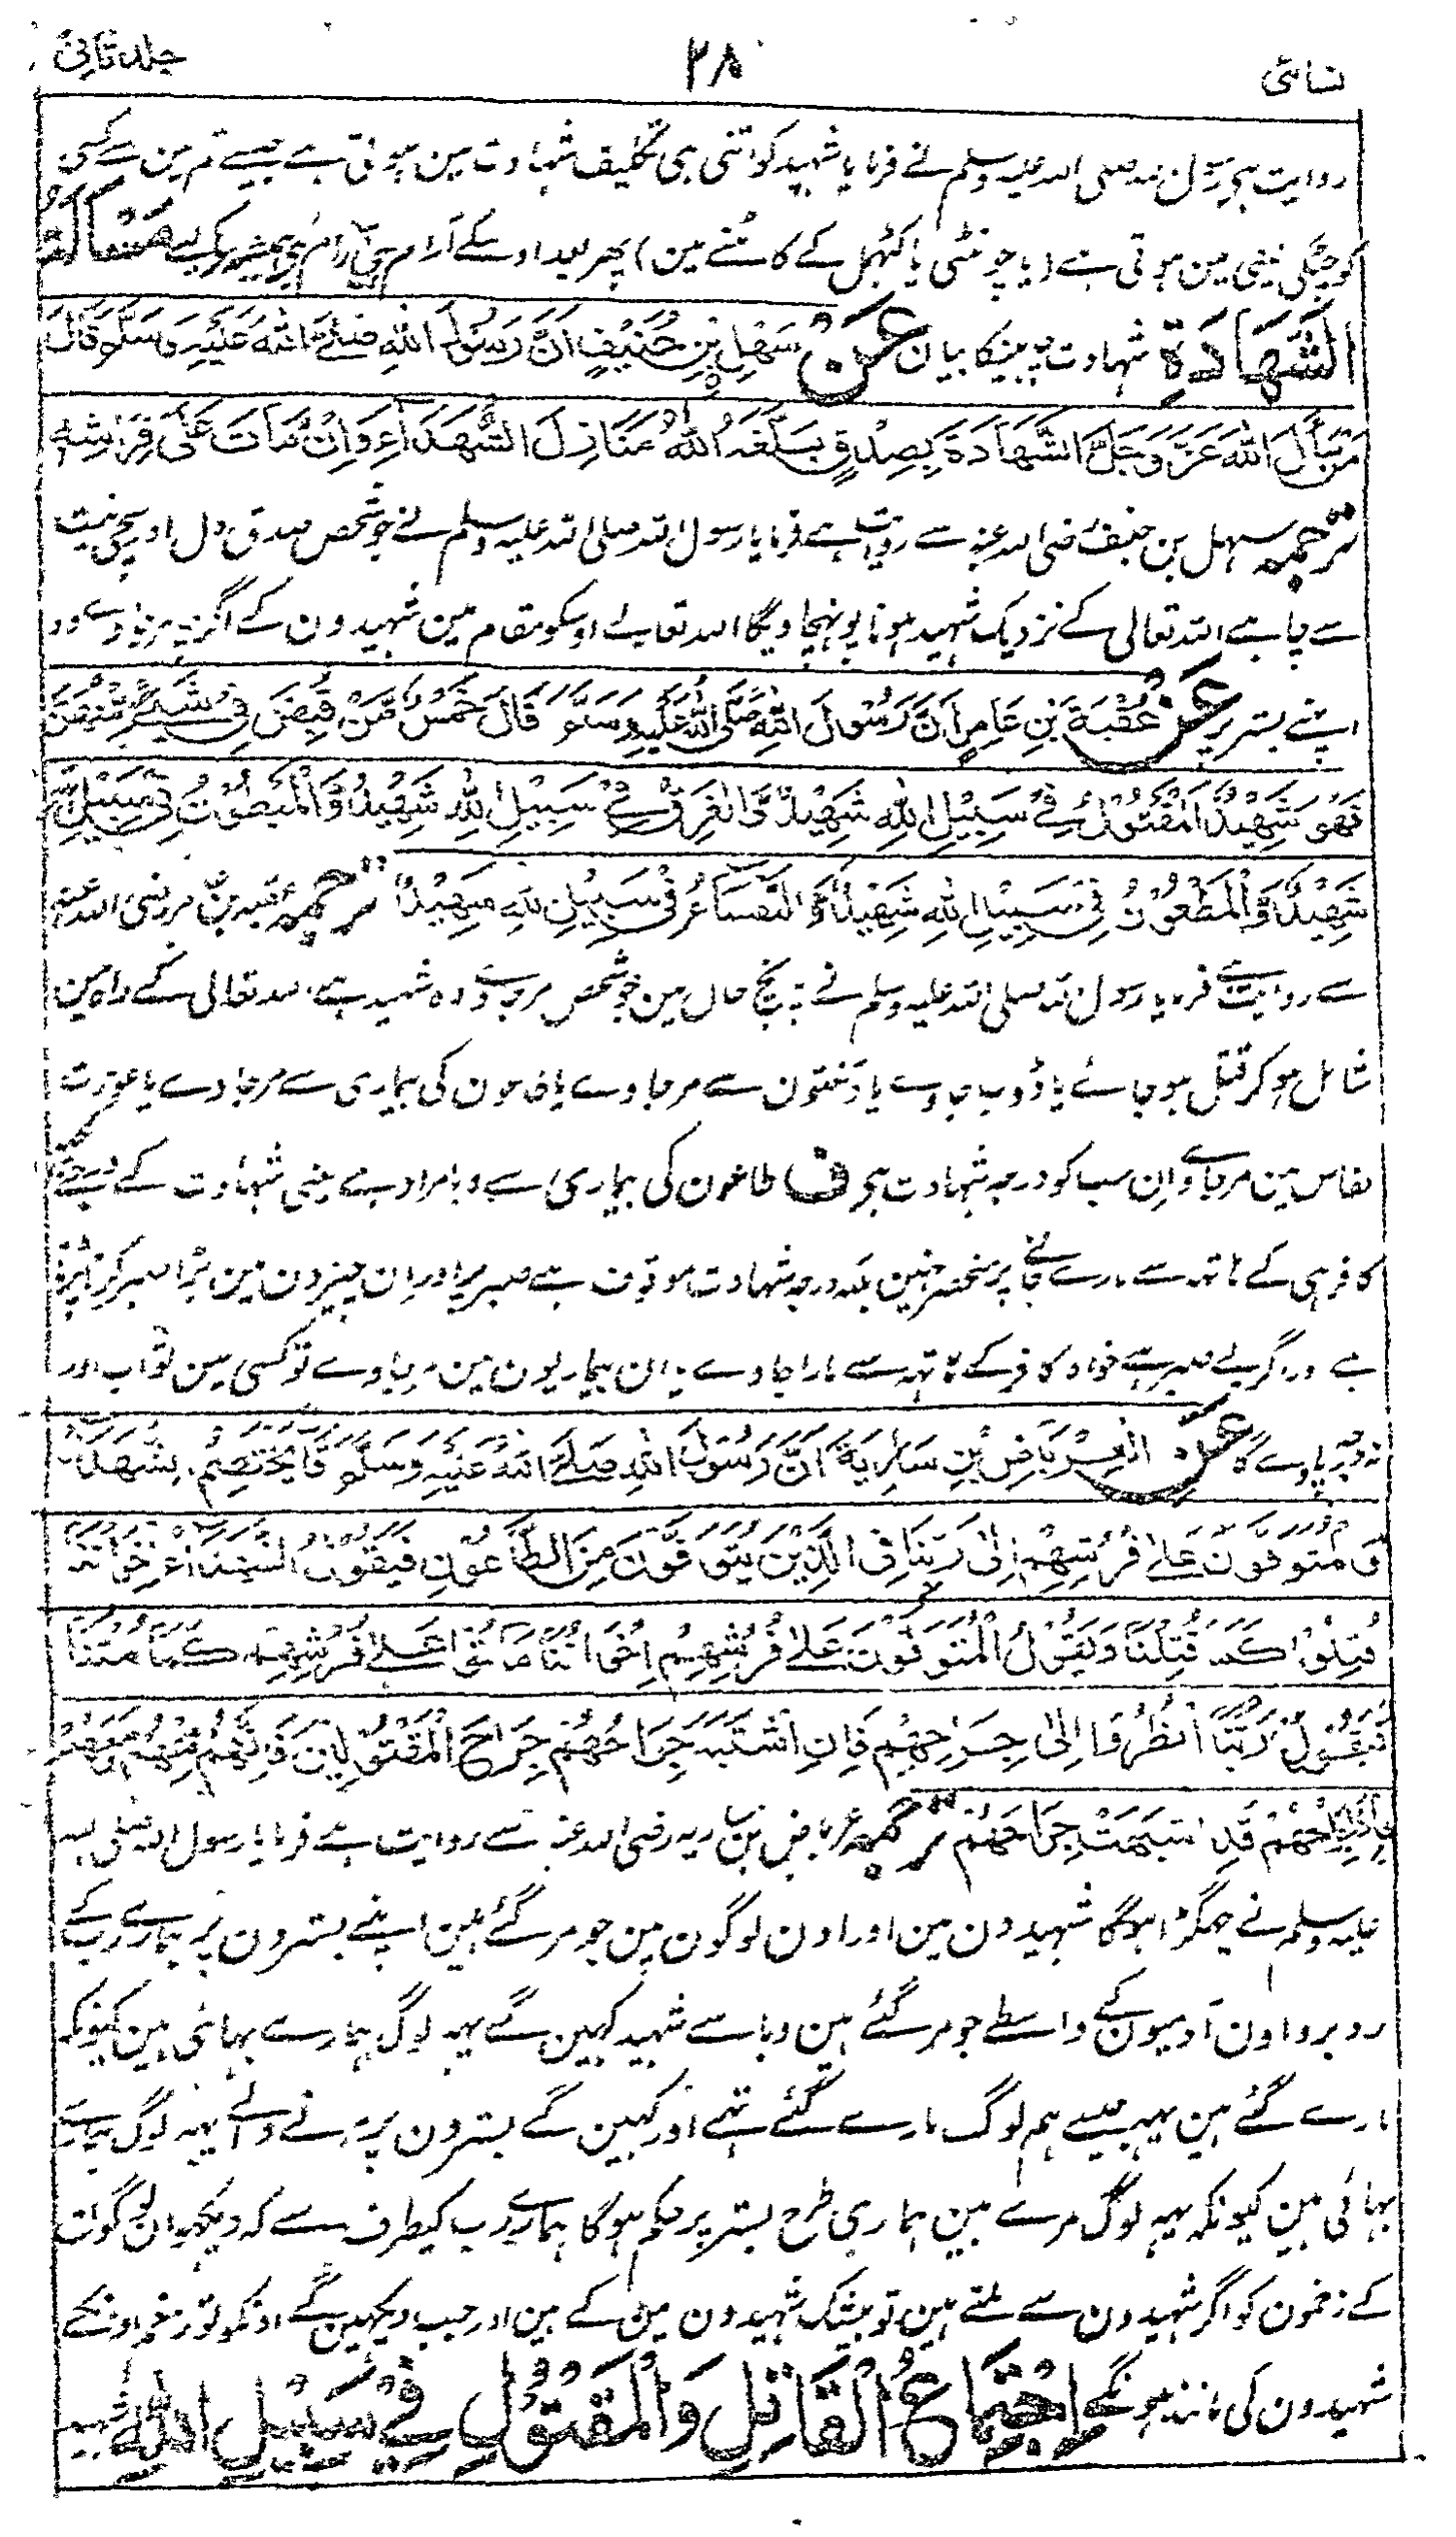 نسائی ۲۸ جلد ثانی
روایت ہی رسول اللہ صلی اللہ علیہ وسلم نے فرمایا شہید کو اتنی ہی تکلیف شہادت مین ہوتی ہے جیسے تم مین سے کسی
کو چٹکی لینی مین ہوتی ہے (یا چونٹی یا کٹہمل کے کاٹنے مین) پہر بعد اوسکے آرام ہی آرام ہی ہمیشہ کے لیے مَسْأَلَۃُ
الشَّهَادَةِ شہادت کا بیان عَنْ سَهْلِ بْنِ حُنَيْفٍ اَنَّ رَسُوْلَ اللهِ صَلَّى اللهُ عَلَيْهِ وَسَلَّمَ قَالَ
مَنْ سَأَلَ اللهَ عَزَّ وَجَلَّ الشَّهَادَةَ بِصِدْقٍ بَلَّغَهُ اللهُ مَنَازِلَ الشُّهَدَآءِ وَاِنْ مَاتَ عَلٰى فِرَاشِهٖ
ترجمہ سہل بن حنیف رضی اللہ عنہ سے روایت ہے فرمایا رسول اللہ صلی اللہ علیہ وسلم نے جو شخص صدق دل اور سچی نیت
سے چاہے اللہ تعالی کے نزدیک شہید ہونا پونہچا ویگا اللہ تعالے اوسکو مقام مین شہیدون کے اگرچہ مرجاوے وہ
اپنے بستر پر عَنْ عُقْبَةَ بْنِ عَامِرٍ اَنَّ رَسُوْلَ اللهِ صَلَّى اللهُ عَلَيْهِ وَسَلَّمَ قَالَ خَمْسٌ مَّنْ قُبِضَ فِيْ شَيْءٍ مِّنْهُنَّ
فَهُوَ شَهِيْدٌ اَلْمَقْتُوْلُ فِيْ سَبِيْلِ اللهِ شَهِيْدٌ وَّالْغَرِقُ فِيْ سَبِيْلِ اللهِ شَهِيْدٌ وَّالْمَبْطُوْنُ فِيْ سَبِيْلِ اللهِ
شَهِيْدٌ وَّالْمَطْعُوْنُ فِيْ سَبِيْلِ اللهِ شَهِيْدٌ وَّالنُّفَسَآءُ فِيْ سَبِيْلِ اللهِ شَهِيْدٌ ترجمہ عقبہ بن عامر رضی اللہ عنہ
سے روایت ہے فرمایا رسول اللہ صلی اللہ علیہ وسلم نے پانچ حال مین جو شخص مرجاوے وہ شہید ہے اللہ تعالی کے راہ مین
شامل ہو کر قتل ہو جائے یا ڈوب جاوے یا دستون سے مرجاوے یا طاعون کی بیماری سے مرجاوے یا عورت
نفاس مین مرجاوے ان سب کو درجہ شہادت ہی ف طاعون کی بیماری سے وبا مراد ہے یعنی شہادت کے درجے
کافر ہی کے ہاتہ سے مارے جانے پر منحصر نہین بلکہ درجہ شہادت موقوف ہے صبر پر اور ان چیزون مین بڑا صبر کرنا پڑتا
ہے اور اگر بے صبر ہے خواہ کافر کے ہاتہ سے مارا جاوے یا ان بیماریون مین مرجاوے تو کسی مین ثواب اور
نہ درجہ پاوے گا عَنِ الْعِرْبَاضِ بْنِ سَارِيَةَ اَنَّ رَسُوْلَ اللهِ صَلَّى اللهُ عَلَيْهِ وَسَلَّمَ قَالَ يَخْتَصِمُ الشُّهَدَآءُ
وَالْمُتَوَفَّوْنَ عَلٰى فُرُشِهِمْ اِلٰى رَبِّنَا فِي الَّذِيْنَ يُتَوَفَّوْنَ مِنَ الطَّاعُوْنِ فَيَقُوْلُ الشُّهَدَآءُ اِخْوَانُنَا
قُتِلُوْا كَمَا قُتِلْنَا وَيَقُوْلُ الْمُتَوَفَّوْنَ عَلٰى فُرُشِهِمْ اِخْوَانُنَا مَاتُوْا عَلٰى فُرُشِهِمْ كَمَا مُتْنَا
فَيَقُوْلُ رَبُّنَا اُنْظُرُوْا اِلٰى جِرَاحِهِمْ فَاِنْ اَشْبَهَ جِرَاحُهُمْ جِرَاحَ الْمَقْتُوْلِيْنَ فَاِنَّهُمْ مِنْهُمْ وَمَعَهُمْ
فَاِذَا جِرَاحُهُمْ قَدْ اَشْبَهَتْ جِرَاحَهُمْ ترجمہ عرباض بن ساریہ رضی اللہ عنہ سے روایت ہے فرمایا رسول اللہ صلی اللہ
علیہ وسلم نے جہگڑا ہوگا شہیدون مین اور اون لوگون مین جو مر گئے ہین اپنے بسترون پر ہمارے رب کے
روبرو اون آدمیون کے واسطے جو مر گئے ہین وبا سے شہید کہین گے یہہ لوگ ہمارے بہائی ہین کیونکہ
مارے گئے ہین یہہ جیسے ہم لوگ مارے گئے تہے اور کہین گے بسترون پر مرنے والے یہہ لوگ ہمارے
بہائی ہین کیونکہ یہہ لوگ مرے ہین ہماری طرح بستر پر حکم ہوگا ہمارے رب کیطرف سے کہ دیکہو ان لوگون
کے زخمون کو اگر شہیدون سے ملتے ہین تو بیشک شہیدون مین کے ہین اور جب دیکہین گے اونکو تو زخم اونکے
شہیدون کی مانند ہونگے اِجْتِمَاعُ الْقَاتِلِ وَالْمَقْتُوْلِ فِيْ سَبِيْلِ اللهِ